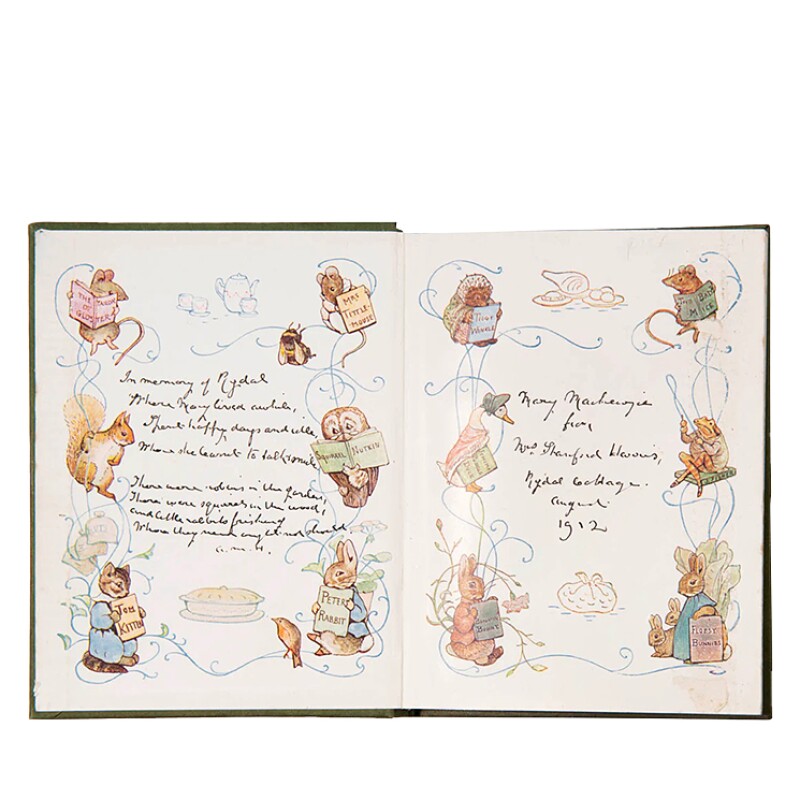 THE TAILOR OF GLO'STER
MRS TITTLE MOUSE
In memory of Rydal
Where Mary lived awhile,
Spent happy days and idle,
Where she learnt to talk & smile
SQUIRREL NUTKIN
There were robins in the garden,
There were squirrels in the wood,
and little rabbits frisking
Where they never
TOM KITTEN
PETER RABBIT
TIGGY WINKLE
TWO BAD MICE
Mary Mackenzie
from
Mrs
Rydal Cottage.
August.
1912
BUNNY
FLOPSY BUNNIES